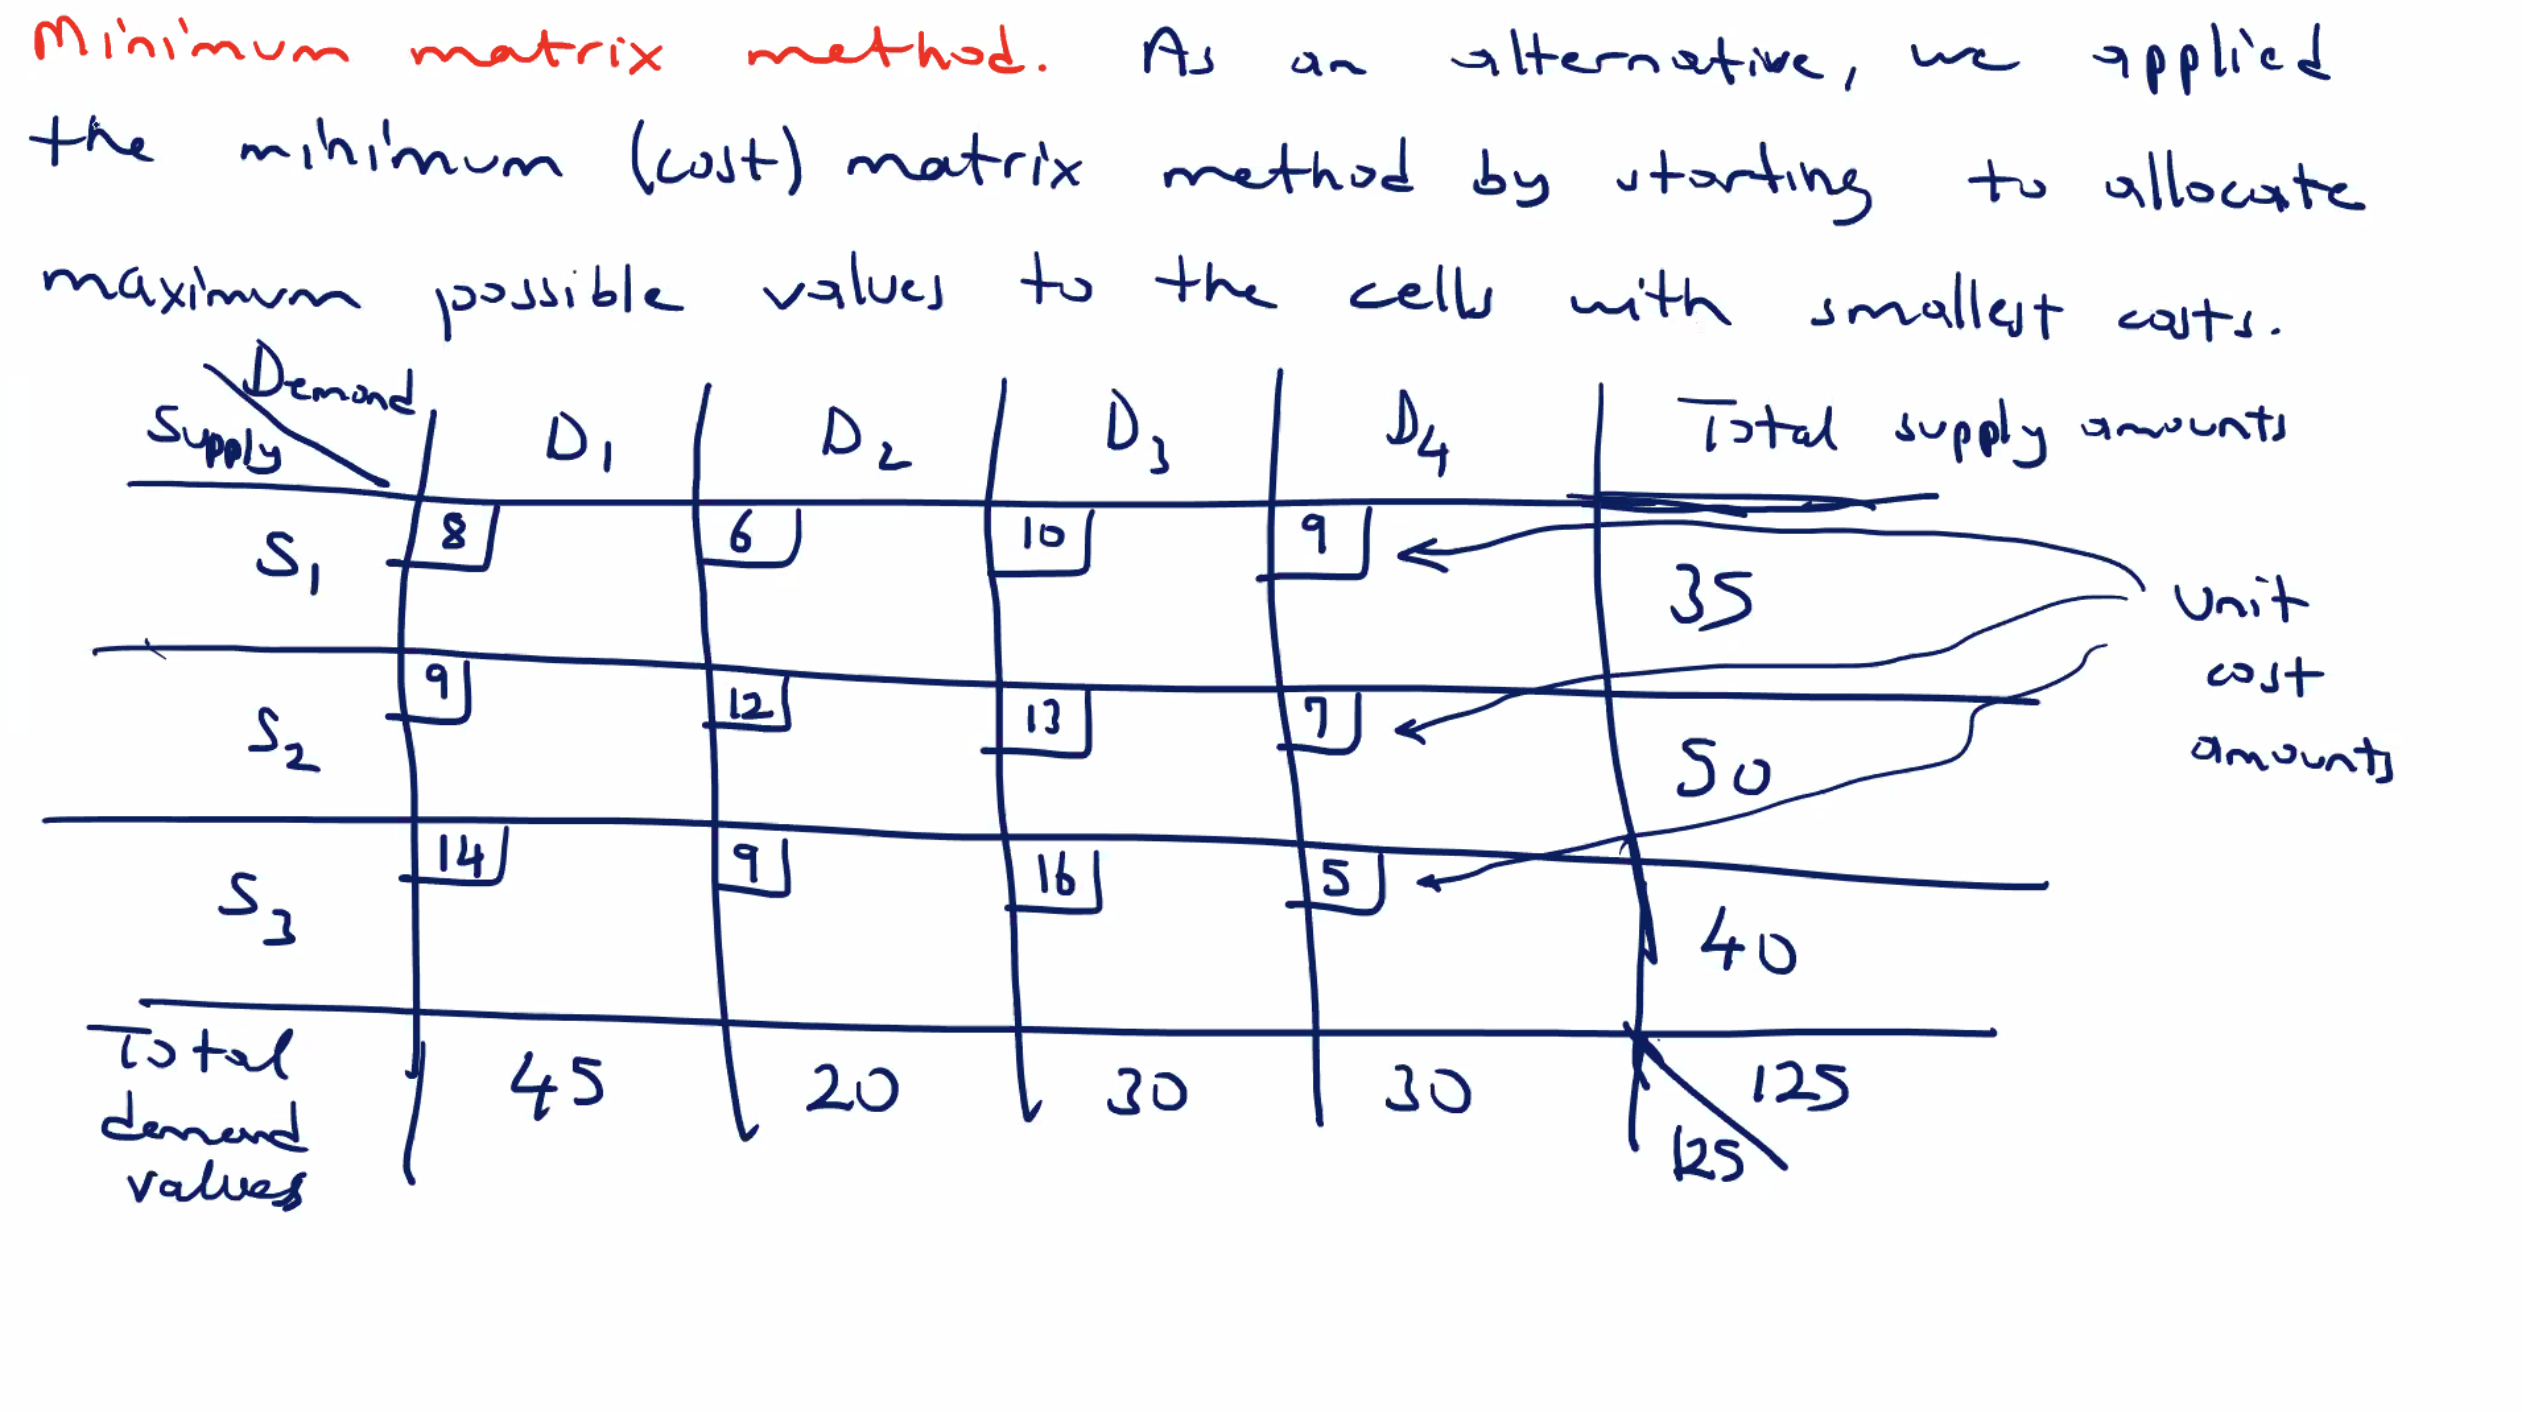 Minimum matrix method. As an alternative, we applied
the minimum (cost) matrix method by starting to allocate
maximum possible values to the cells with smallest costs.
Demand
Supply D1 D2 D3 D4 Total supply amounts
S1 8 6 10 9 35
S2 9 12 13 7 50
S3 14 9 16 5 40
Unit
cost
amounts
Total
demand
values
45 20 30 30 125
125